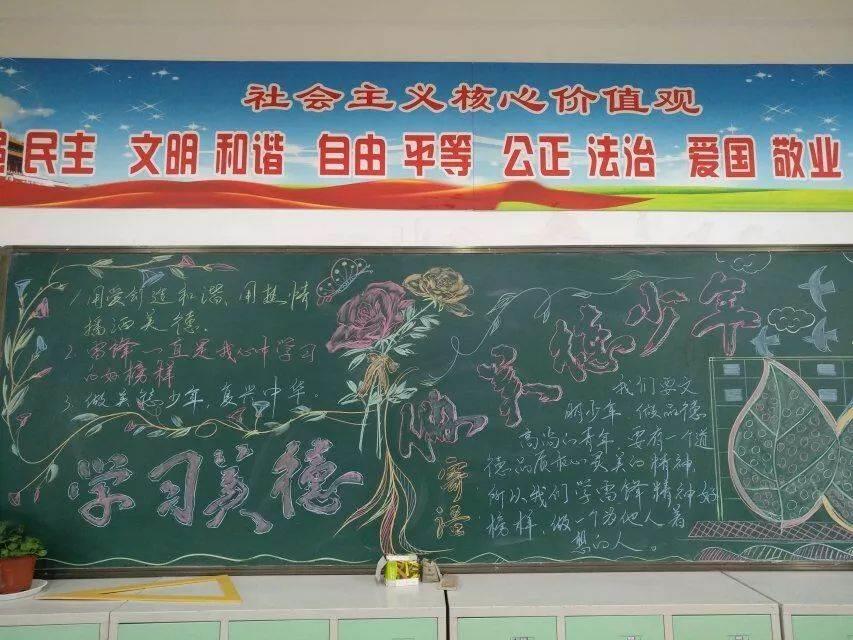 社会主义核心价值观
民主 文明 和谐 自由 平等 公正 法治 爱国 敬业
1.用爱创造和谐、用热情
播洒美德.
2.雷锋一直是我心中学习
的好榜样
3、做美德少年,复兴中华。
学习美德
美德少年
我们要文
明少年 做品德
高尚的青年,要有一个道
德品质和心灵美的精神,
所以我们学雷锋精神好
榜样,做一个为他人着
想的人。